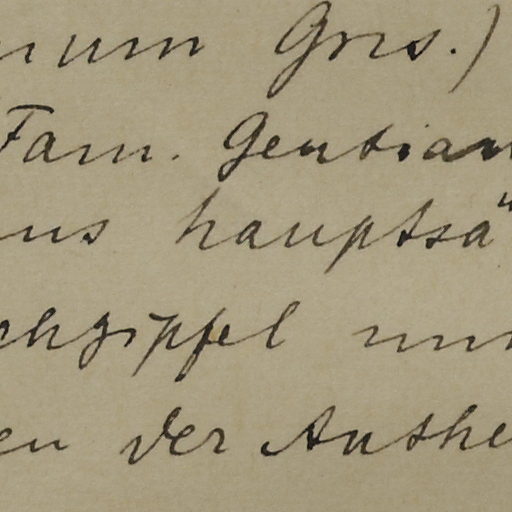 num Gris.)
Fam. Gentian
us hauptsä
chzipfel un
en der Anthe